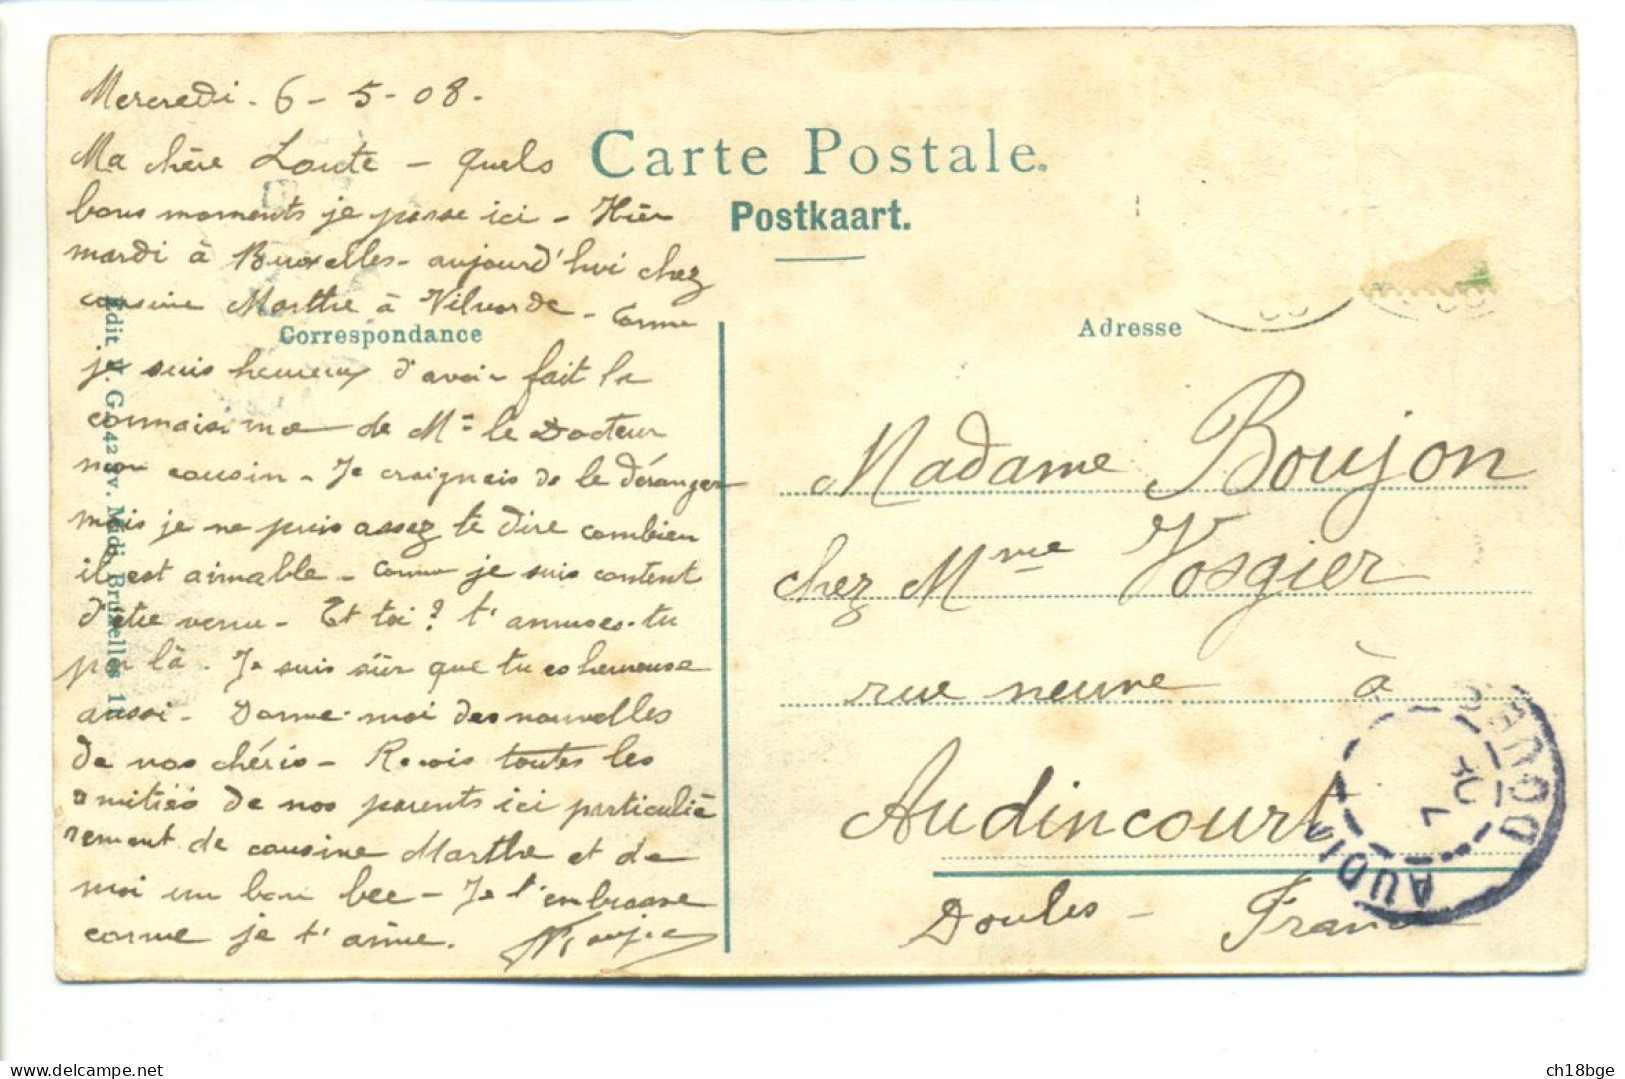 Mercredi - 6 - 5 - 08 -
Ma chère Loute - Quels
bons moments je passe ici - Hier
mardi à Bruxelles - aujourd'hui chez
cousine Marthe à Vilvorde - Comme
je suis heureux d'avoir fait la
connaissance de Mr le Docteur
mon cousin - Je craignais de le déranger
mais je ne puis assez te dire combien
il est aimable - Comme je suis content
d'être venu - Et toi ? t'amuses-tu
par là . Je suis sûr que tu es heureuse
aussi - Donne-moi des nouvelles
de nos chéris - Reçois toutes les
amitiés de nos parents ici particuliè
rement de cousine Marthe et de
moi un bon bec - Je t'embrasse
comme je t'aime .
Carte Postale.
Postkaart.
Correspondance
Adresse
Madame Boujon
chez Mme Vosgier
rue neuve à
Audincourt
Doubs - France
Edit. V. G. 42 Bv. Midi, Bruxelles 11
AUDIN DOUBS
7
delcampe.net
ch18bge